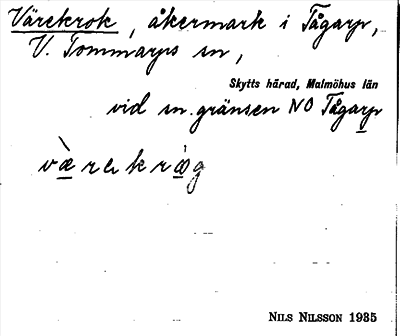 Värekrok, åkermark i Tågarp,
V. Tommarps sn,
Skytts härad, Malmöhus län
vid sn.gränsen NO Tågarp
Nils Nilsson 1935